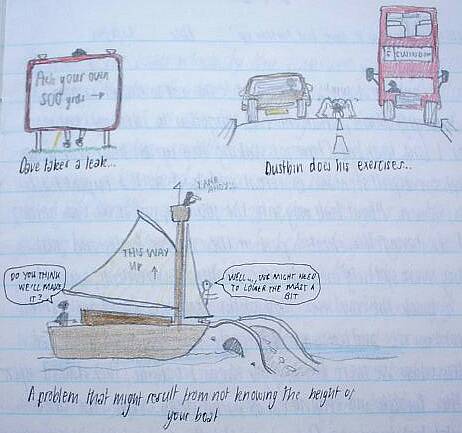 Ask your own
500 yrds →
Dave takes a leak...
SWINDON
Dustbin does his exercises...
LAND
AHOY!!
THIS WAY
UP ↑
DO YOU THINK
WE'LL MAKE
IT?
WELL... WE MIGHT NEED
TO LOWER THE MAST A
BIT
A problem that might result from not knowing the height of
your boat